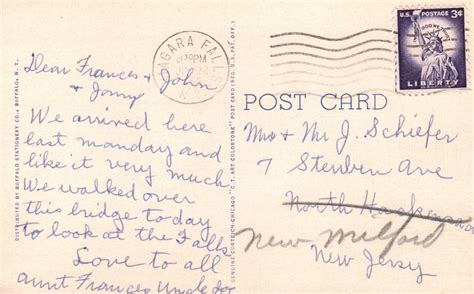 Dear Frances & John
& Jonny
We arrived here
last monday and
like it very much
We walked over
this bridge today
to look at the Falls
Love to all
aunt Frances Uncle Joe
BUFFALO STATIONERY CO., BUFFALO, N. Y.
GENUINE CURTEICH-CHICAGO "C.T. ART-COLORTONE" POST CARD (REG. U.S. PAT. OFF.)
NIAGARA FALLS
PM
N.Y.
U.S. POSTAGE 3¢
IN GOD WE TRUST
LIBERTY
POST CARD
Mrs & Mr J. Schiefer
7 Steuben Ave
North
New Milford
New Jersy